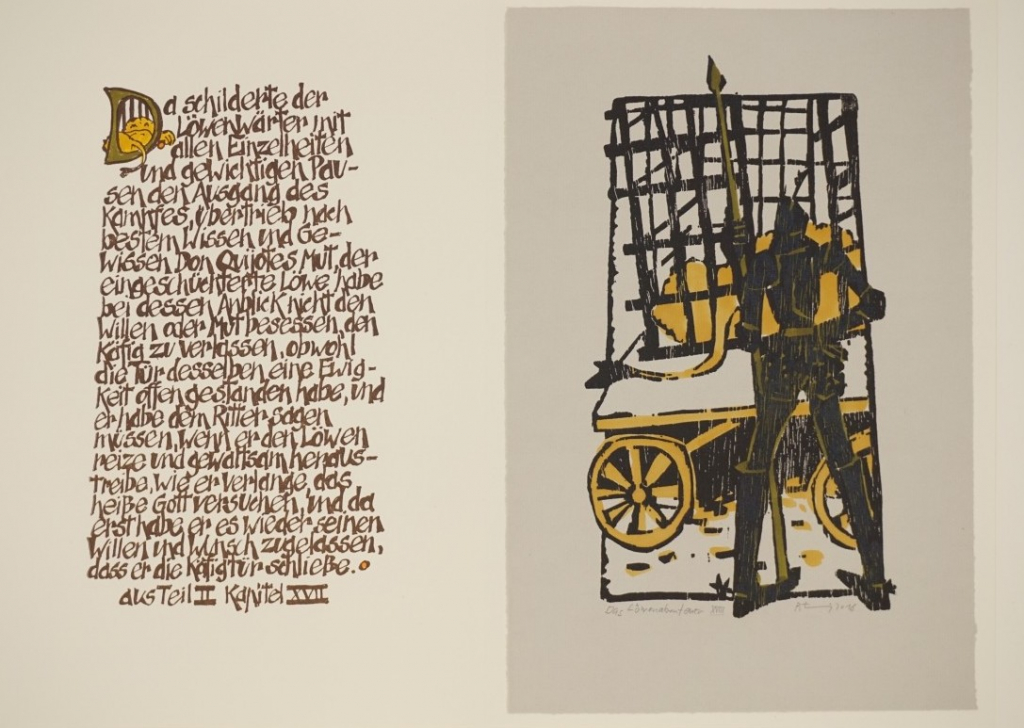 Da schilderte der
Löwenwärter mit
allen Einzelheiten
und gewichtigen Pau-
sen den Ausgang des
Kampfes, übertrieb nach
bestem Wissen und Ge-
wissen Don Quijotes Mut, der
eingeschüchterte Löwe habe
bei dessen Anblick nicht den
Willen oder Mut besessen, den
Käfig zu verlassen, obwohl
die Tür desselben eine Ewig-
keit offen gestanden habe, und
er habe dem Ritter sagen
müssen, wenn er den Löwen
reize und gewaltsam heraus-
treibe, wie er verlange, das
heiße Gott versuchen, und da
erst habe er es wieder seinen
Willen und Wunsch zugelassen,
dass er die Käfigtür schließe.
aus Teil II Kapitel XVII
Das Löwenabenteuer XVII